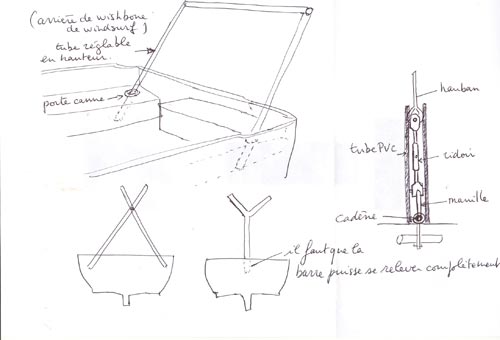 (arrière de wishbone
de windsurf)
tube réglable
en hauteur.
porte canne
hauban
tube PVC
ridoir
manille
cadène
il faut que la
barre puisse se relever complètement